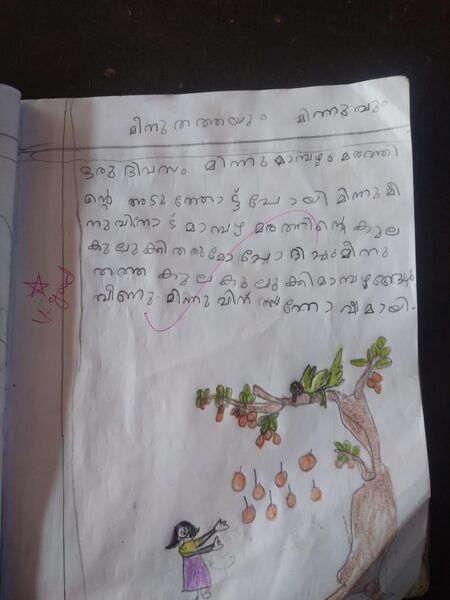 മീനു തത്തയും മിന്നുവും
ഒരു ദിവസം മിന്നു മാമ്പഴം മരത്തി
ന്റെ അടുത്തോട്ട് പോയി മിന്നു മീ
നുവിനോട് മാമ്പഴ മരത്തിന്റെ കുല
കുലുക്കി തരുമോ ചോദിച്ചു മീനു
തത്ത കുല കുലുക്കി മാമ്പഴങ്ങൾ
വീണു. മിന്നുവിന് സന്തോഷമായി.
V. good